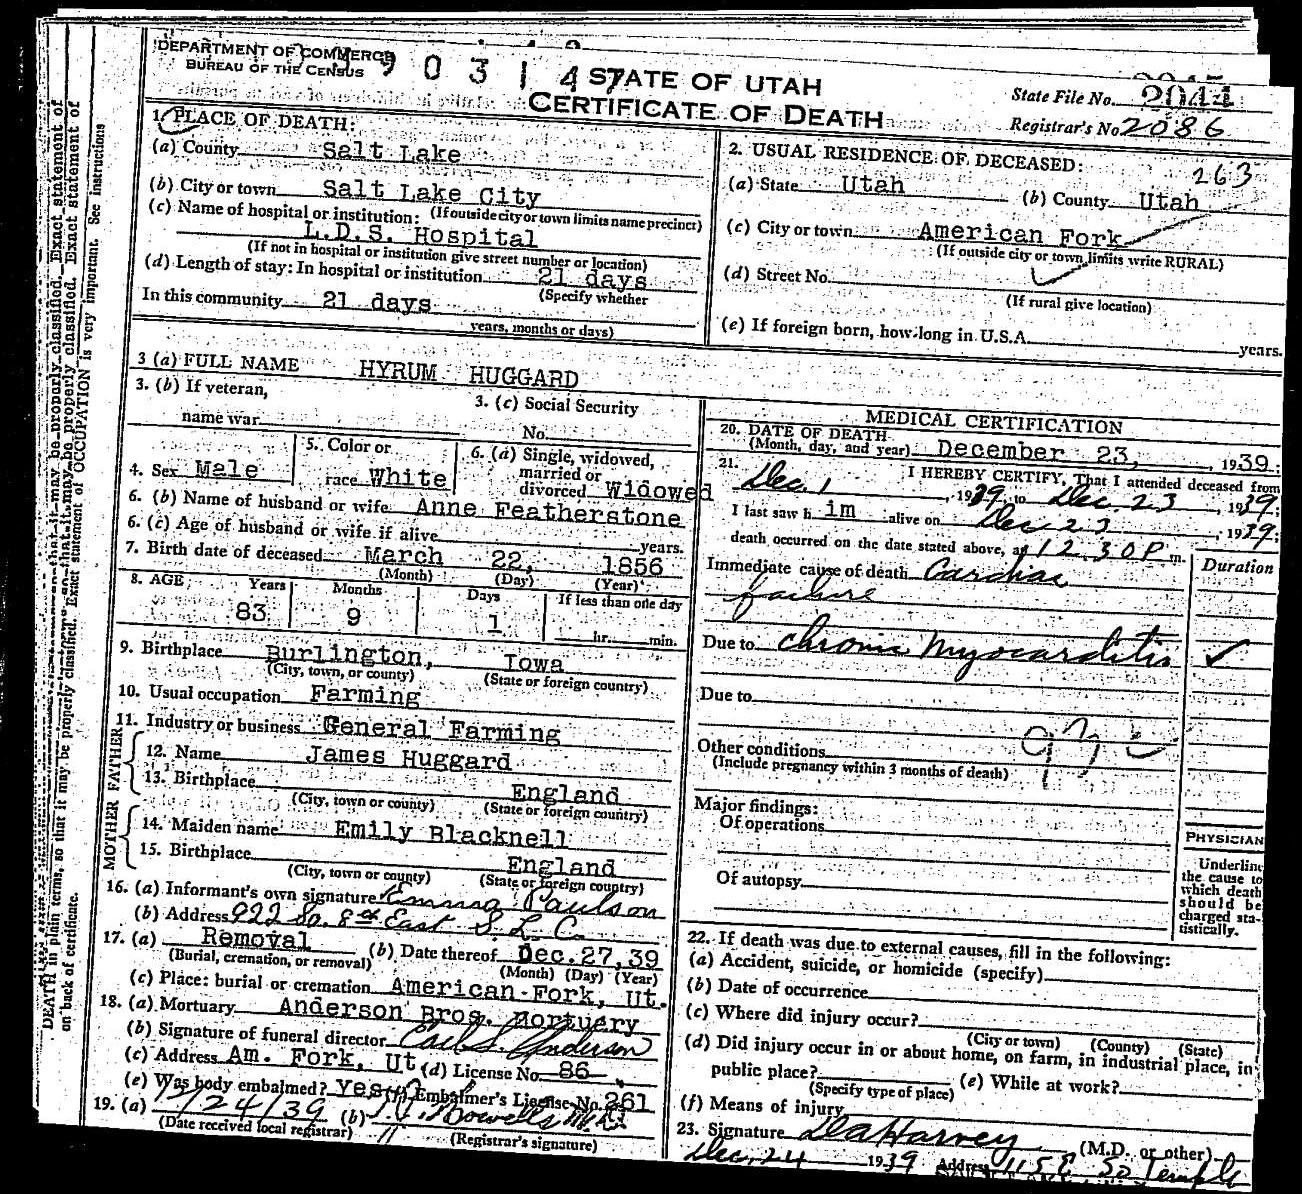 DEPARTMENT OF COMMERCE
BUREAU OF THE CENSUS
9 0 3 1 4 7
STATE OF UTAH
CERTIFICATE OF DEATH
State File No. 2044
Registrar's No 2086
1. PLACE OF DEATH:
(a) County Salt Lake
(b) City or town Salt Lake City
(If outside city or town limits name precinct)
(c) Name of hospital or institution:
L.D.S. Hospital
(If not in hospital or institution give street number or location)
(d) Length of stay: In hospital or institution 21 days
(Specify whether
In this community 21 days
years, months or days)
2. USUAL RESIDENCE OF DECEASED:
263
(a) State Utah (b) County Utah
(c) City or town American Fork
(If outside city or town limits write RURAL)
(d) Street No.
(If rural give location)
(e) If foreign born, how long in U.S.A. years.
3 (a) FULL NAME HYRUM HUGGARD
3. (b) If veteran,
name war
3. (c) Social Security
No.
4. Sex Male
5. Color or
race White
6. (a) Single, widowed,
married or
divorced Widowed
6. (b) Name of husband or wife Anne Featherstone
6. (c) Age of husband or wife if alive years.
7. Birth date of deceased March 22, 1856
(Month) (Day) (Year)
8. AGE Years Months Days If less than one day
83 9 1 hr. min.
9. Birthplace Burlington, Iowa
(City, town, or county) (State or foreign country)
10. Usual occupation Farming
11. Industry or business General Farming
FATHER
12. Name James Huggard
13. Birthplace England
(City, town or county) (State or foreign country)
MOTHER
14. Maiden name Emily Blacknell
15. Birthplace England
(City, town or county) (State or foreign country)
16. (a) Informant's own signature Emma Paulson
(b) Address 922 So. 8th East S. L. C.
17. (a) Removal (b) Date thereof Dec. 27, 39
(Burial, cremation, or removal) (Month) (Day) (Year)
(c) Place: burial or cremation American Fork, Ut.
18. (a) Mortuary Anderson Bros. Mortuery
(b) Signature of funeral director Earl S. Anderson
(c) Address Am. Fork, Ut (d) License No. 86
(e) Was body embalmed? Yes (f) Embalmer's License No. 261
19. (a) 12/24/39 (b)
(Date received local registrar) (Registrar's signature)
MEDICAL CERTIFICATION
20. DATE OF DEATH
(Month, day, and year) December 23, 1939;
21. I HEREBY CERTIFY, That I attended deceased from
Dec. 1, 1939 to Dec. 23, 1939;
I last saw h im alive on Dec 23, 1939;
death occurred on the date stated above, at 12 30 P m.
Duration
Immediate cause of death Cardiac
failure
Due to chronic Myocarditis ✓
Due to
Other conditions
(Include pregnancy within 3 months of death)
Major findings:
Of operations
Of autopsy
PHYSICIAN
Underline
the cause to
which death
should be
charged sta-
tistically.
22. If death was due to external causes, fill in the following:
(a) Accident, suicide, or homicide (specify)
(b) Date of occurrence
(c) Where did injury occur?
(City or town) (County) (State)
(d) Did injury occur in or about home, on farm, in industrial place, in
public place? (e) While at work?
(Specify type of place)
(f) Means of injury
23. Signature D A Harvey (M.D. or other)
Dec. 24 1939 Address 115 E So Temple
DEATH in plain terms, so that it may be properly classified. Exact statement of OCCUPATION is very important. See instructions
on back of certificate.